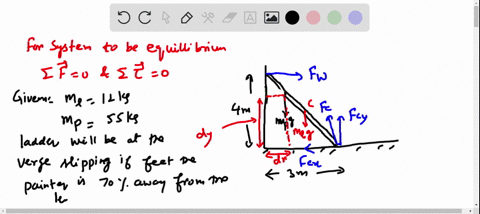 For system to be equilibrium
ΣF⃗=0 & Στ⃗=0
Given: mℓ=12kg
mp=55kg
ladder will be at the
verge slipping if feet the
painter is 70% away from the
4m
dy
Fw
C
Fc
Fcy
mpg
mℓg
dx
Fcx
3m